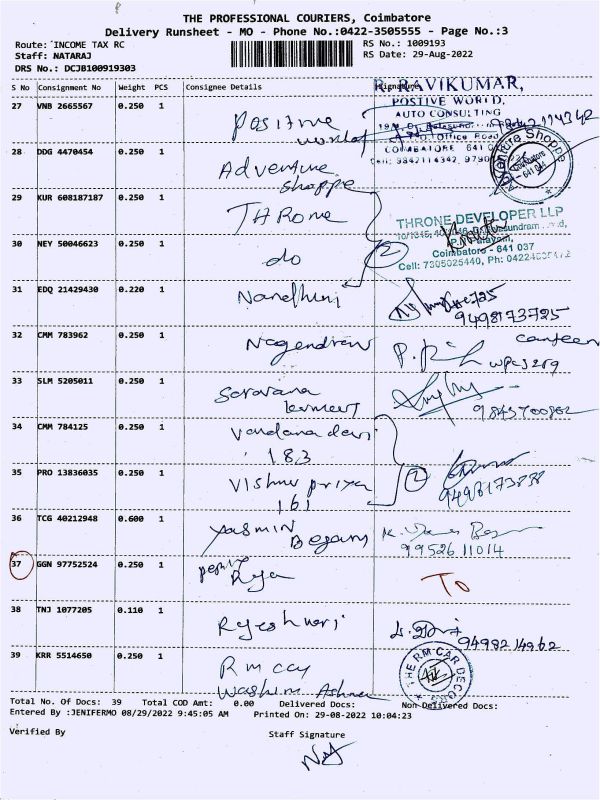 THE PROFESSIONAL COURIERS, Coimbatore
Delivery Runsheet - MO - Phone No.:0422-3505555 - Page No.:3
Route: INCOME TAX RC
Staff: NATARAJ
DRS No.: DCJB100919303
RS No.: 1009193
RS Date: 29-Aug-2022
S No Consignment No Weight PCS Consignee Details Signature
R. RAVIKUMAR,
POSTIVE WORLD,
AUTO CONSULTING
27 VNB 2665567 0.250 1 Positive world
Office Road
COIMBATORE 641 0
Cell: 9842114342, 9790
28 DDG 4470454 0.250 1 Adventure shoppe
Coimbatore
641 041
29 KUR 608187187 0.250 1 THRone
THRONE DEVELOPER LLP
Coimbatore - 641 037
Cell: 7305025440, Ph:
30 NEY 50046623 0.250 1 do 2
31 EDQ 21429430 0.220 1 Nandhini
9498173725
32 CMM 783962 0.250 1 Nagendran
canteen
33 SLM 5205011 0.250 1 Saravana
34 CMM 784125 0.250 1 Vandana devi
183
35 PRO 13836035 0.250 1 Vishnu priya 2
161
9498173838
36 TCG 40212948 0.600 1 Yasmin Begam
9952611014
37 GGN 97752524 0.250 1 Raja TO
38 TNJ 1077205 0.110 1 Rajeshwari
9498214962
39 KRR 5514650 0.250 1 Rm car
THE RM CAR DECOR
Total No. Of Docs: 39 Total COD Amt: 0.00 Delivered Docs: Non Delivered Docs:
Entered By :JENIFERMO 08/29/2022 9:45:05 AM Printed On: 29-08-2022 10:04:23
Verified By Staff Signature